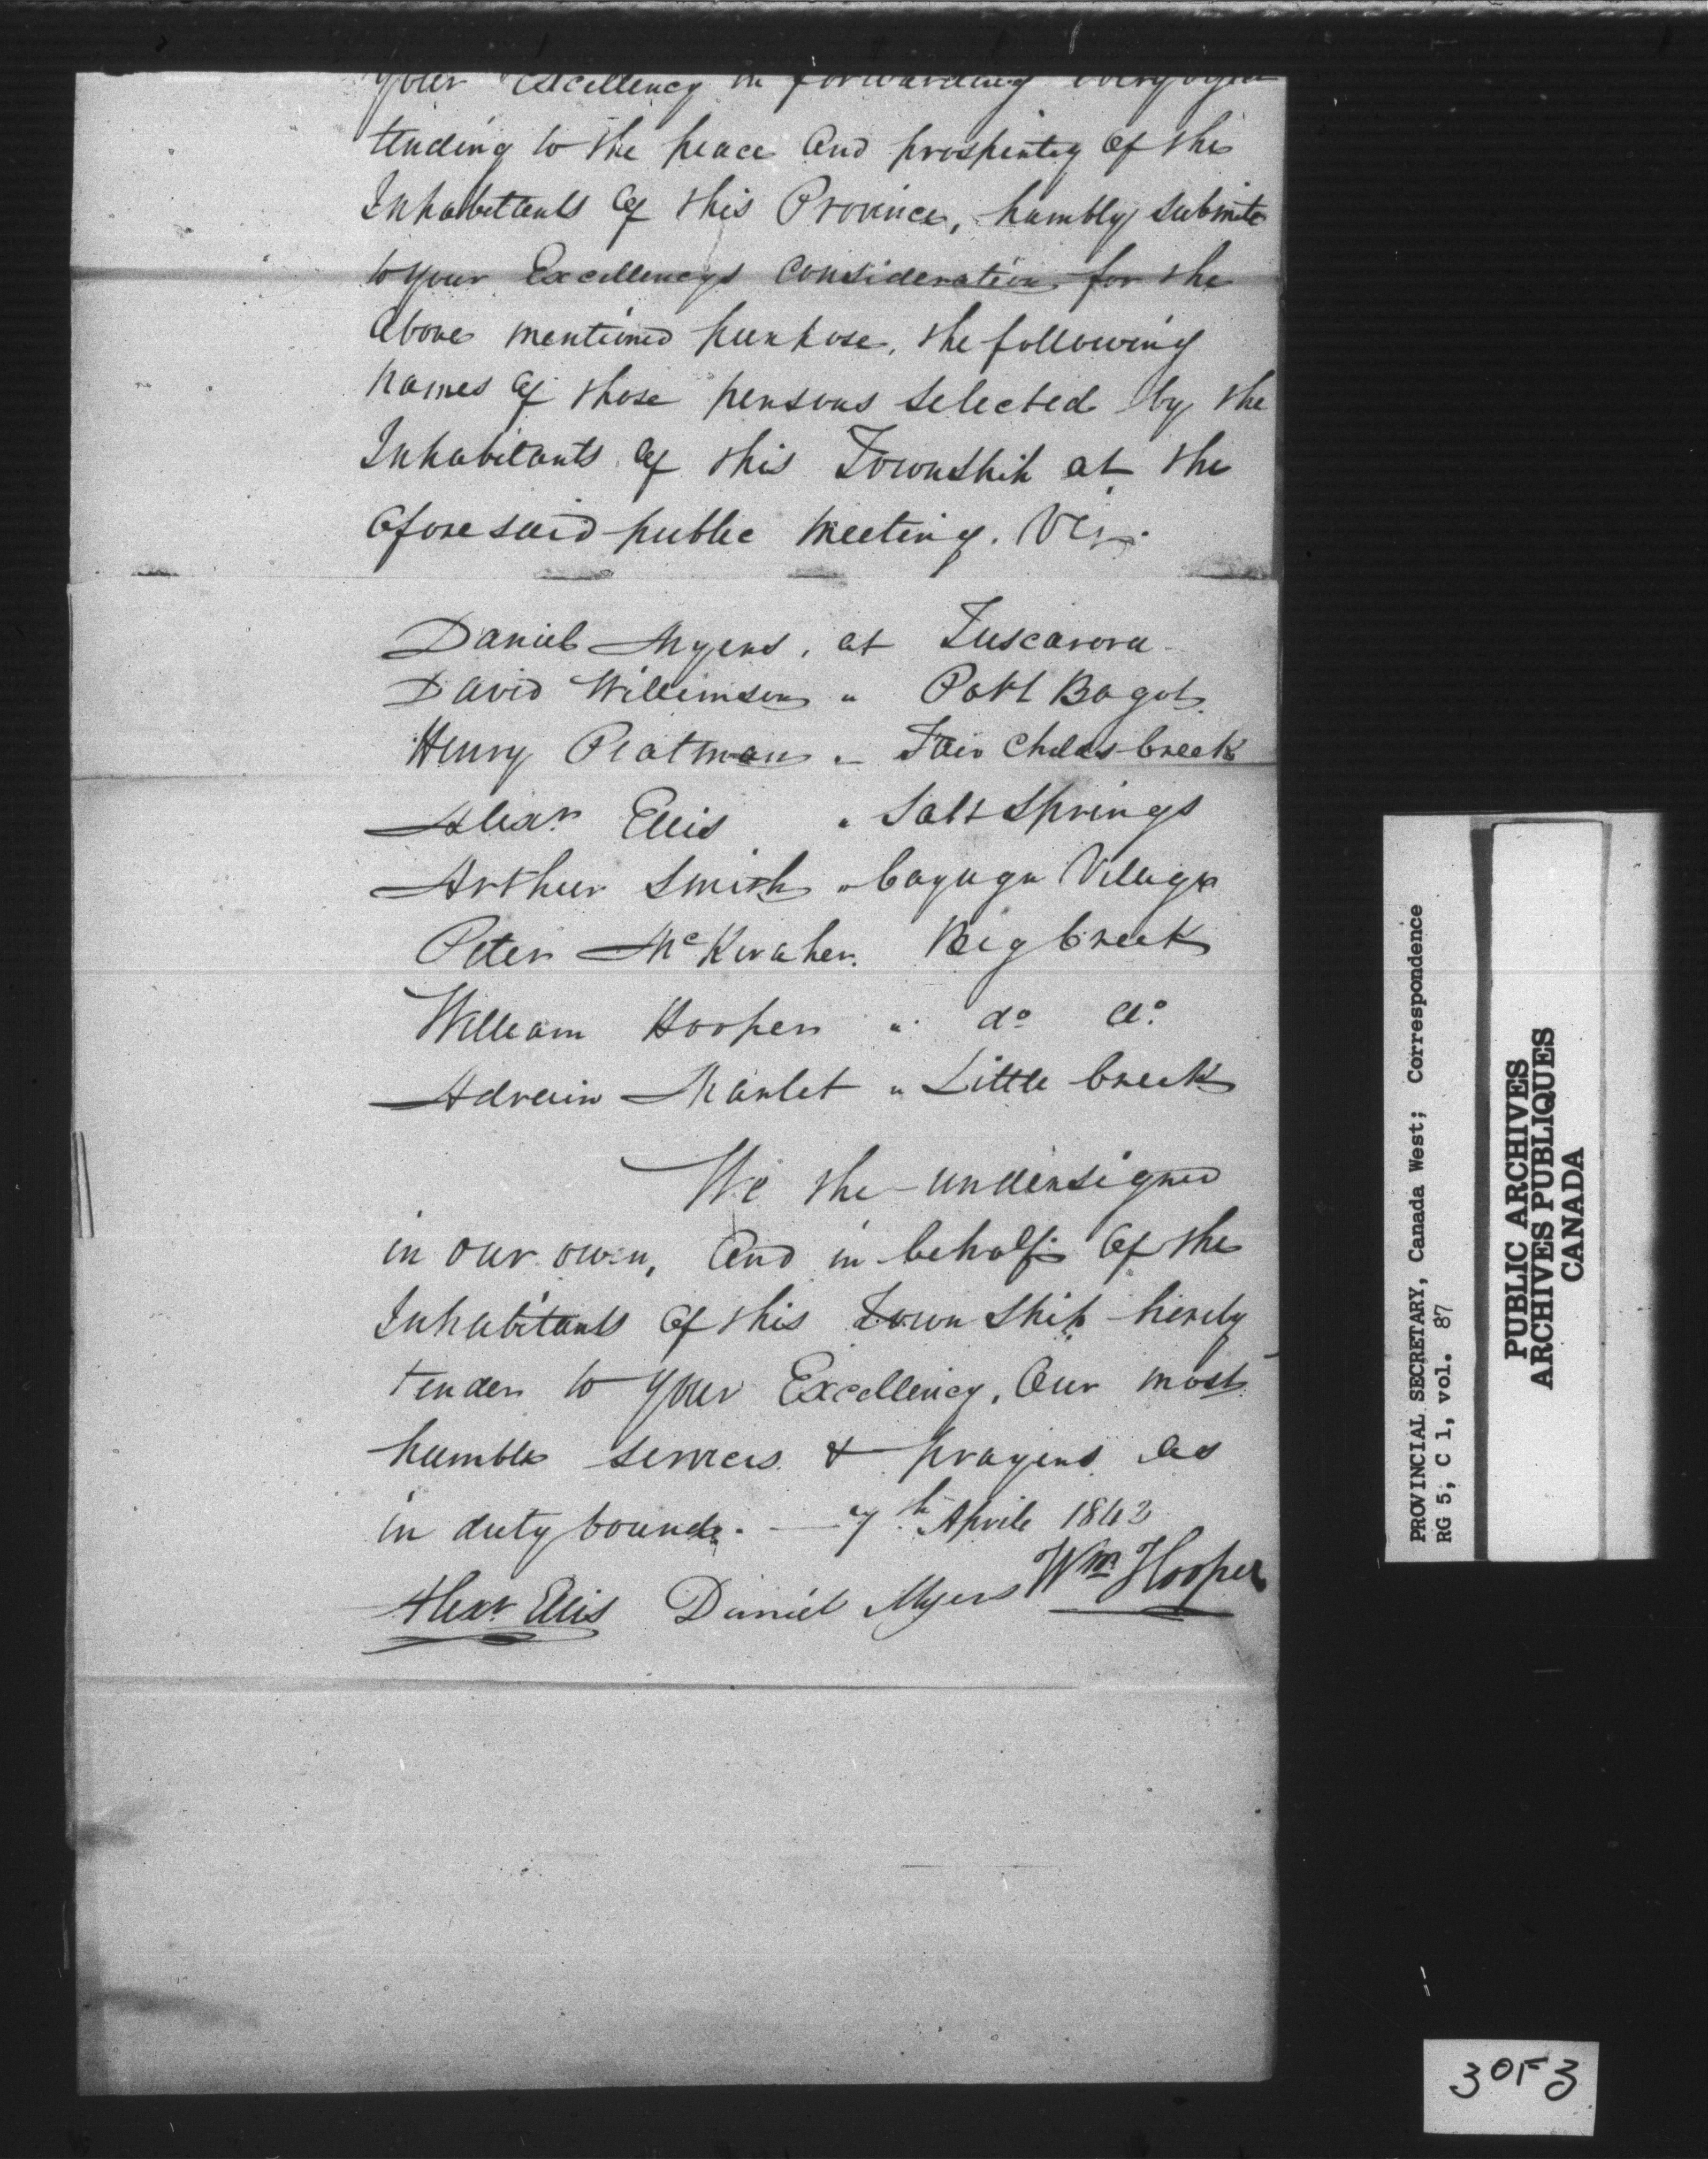 your Excellency in forwarding every
tending to the peace and prosperity of the
Inhabittants of this Province, humbly submite
to your Excellencys Consideration for the
above mentioned purpose, the following
names of those persons selected by the
Inhabitants of this Township at the
aforesaid public meeting. Viz.
Daniel Myers, at Tuscarora
David Willimson " Port Bagot
Henry Peatman " Fair Childs Creek
Alexr Ellis " Salt Springs
Arthur Smith " Cayuga Village
Peter Big Creek
William Hooper " do do
Adrain Marlet " Little Creek
We the undersigned
in our own, and in behalf of the
Inhabitants of this Town Ship hereby
tender to your Excellency, Our most
humble services & prayers as
in duty bound. — 7th Aprile 1842
Alexr Ellis Daniel Myers Wm Hooper
PROVINCIAL SECRETARY, Canada West; Correspondence
RG 5, C 1, vol. 87
PUBLIC ARCHIVES
ARCHIVES PUBLIQUES
CANADA
3 OF 3